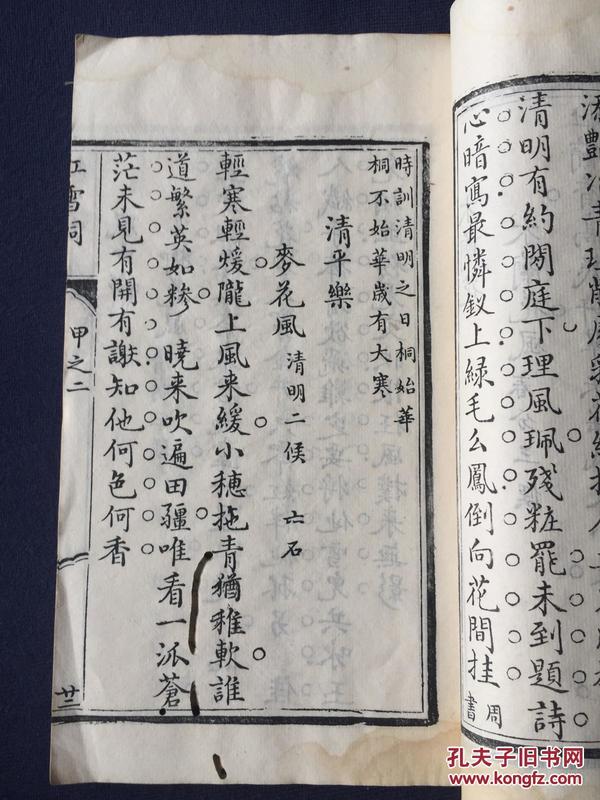 清明有約閒庭下理風珮殘粧罷未到題詩
心暗寫最憐釵上綠毛么鳳倒向花間挂
周書
時訓清明之日桐始華
桐不始華歲有大寒
清平樂
麥花風清明二候 六石
輕寒輕煖隴上風来緩小穗拖青猶稚軟誰
道繁英如糝 曉来吹遍田疆唯看一派蒼
茫未見有開有謝知他何色何香
雪詞
甲之二
廿三
孔夫子旧书网
www.kongfz.com